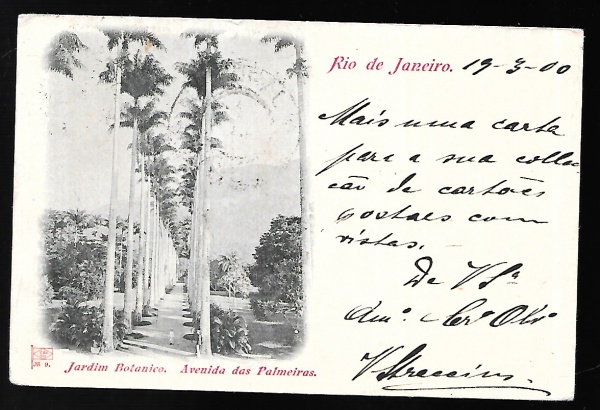 Rio de Janeiro. 19-3-00
Mais uma carta
para a sua colle-
cão de cartões
postaes com
vistas.
De V Sª
Amº.
36 9.
Jardim Botanico. Avenida das Palmeiras.